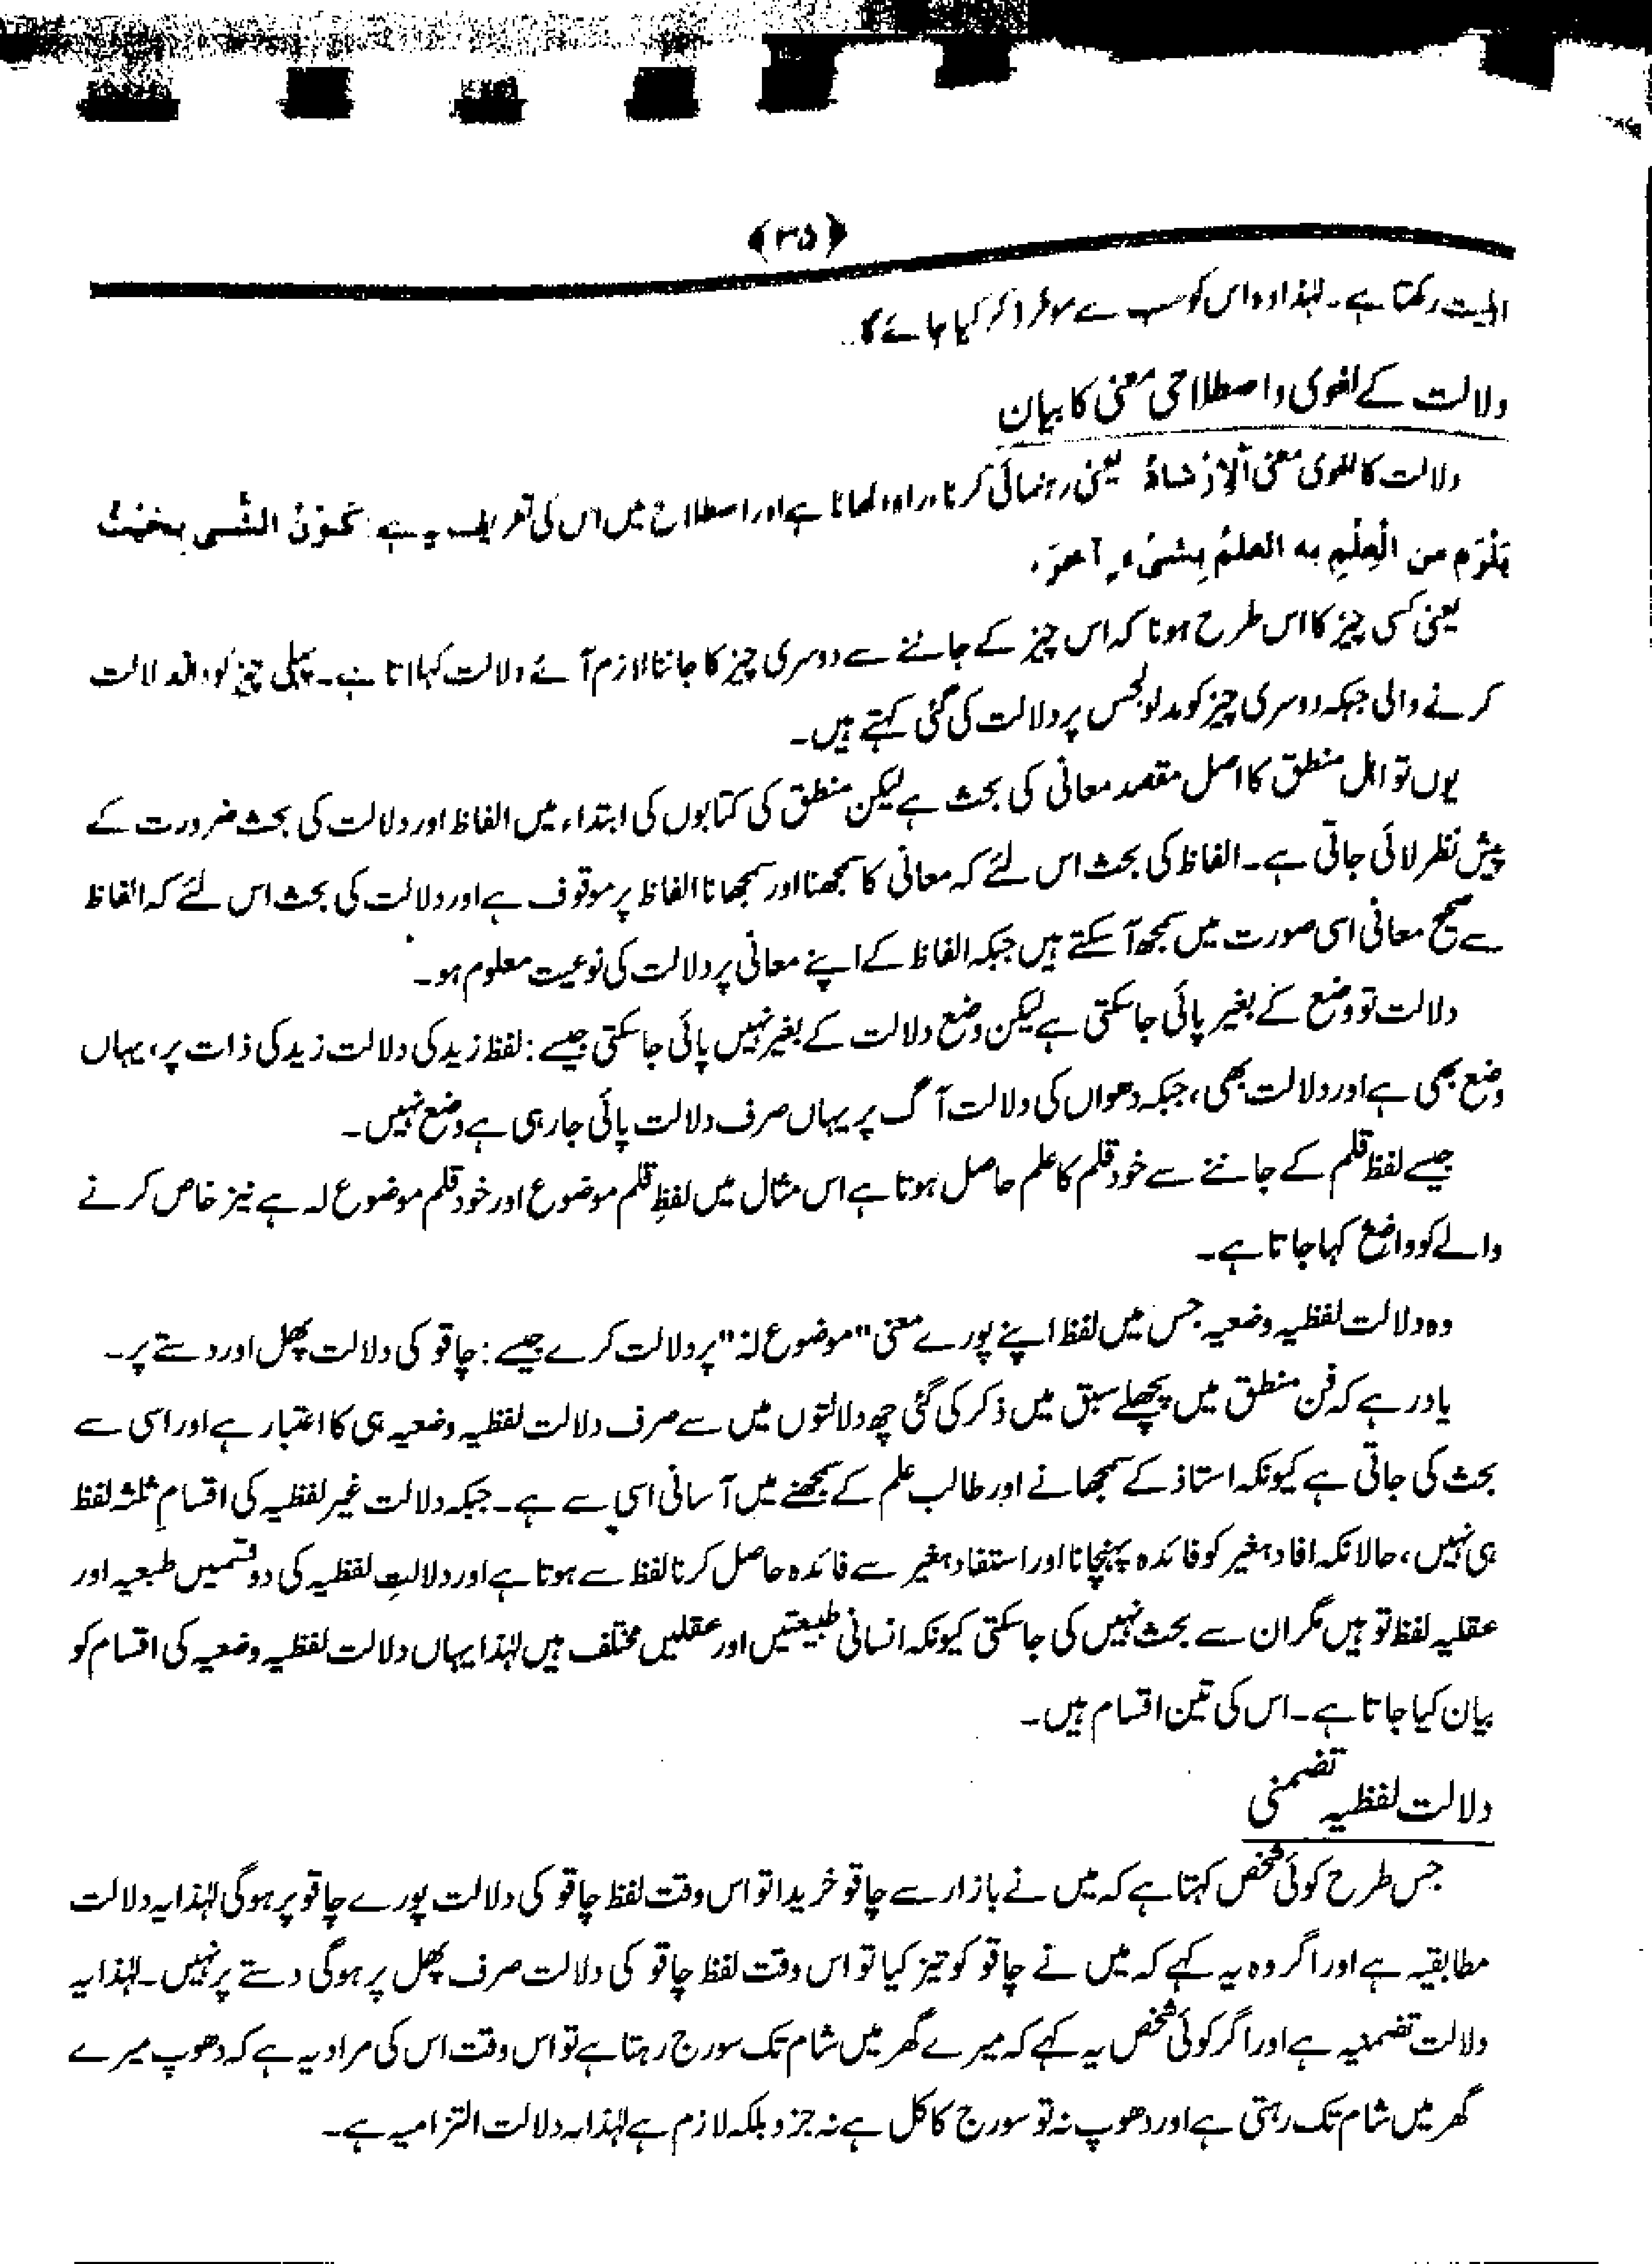 ﴿۳۵﴾
اہمیت رکھتا ہے۔ لہٰذا وہ اس کو سب سے مؤخر ذکر کیا جائے گا۔
دلالت کے لغوی واصطلاحی معنی کا بیان
دلالت کا لغوی معنی اَلْاِرْشَادُ یعنی رہنمائی کرنا، راہ دکھانا ہے اور اصطلاح میں اس کی تعریف یہ ہے: كَوْنُ الشَّيءِ بِحَيْثُ
يَلْزَم من الْعِلْمِ به العلمُ بِشيءٍ آخرَ.
یعنی کسی چیز کا اس طرح ہونا کہ اس چیز کے جاننے سے دوسری چیز کا جاننا لازم آئے دلالت کہلاتا ہے۔ پہلی چیز کو دال دلالت
کرنے والی جبکہ دوسری چیز کو مدلول جس پر دلالت کی گئی کہتے ہیں۔
یوں تو اہل منطق کا اصل مقصد معانی کی بحث ہے لیکن منطق کی کتابوں کی ابتداء میں الفاظ اور دلالت کی بحث ضرورت کے
پیش نظر لائی جاتی ہے۔ الفاظ کی بحث اس لئے کہ معانی کا سمجھنا اور سمجھانا الفاظ پر موقوف ہے اور دلالت کی بحث اس لئے کہ الفاظ
سے صحیح معانی اسی صورت میں سمجھ آسکتے ہیں جبکہ الفاظ کے اپنے معانی پر دلالت کی نوعیت معلوم ہو۔
دلالت تو وضع کے بغیر پائی جاسکتی ہے لیکن وضع دلالت کے بغیر نہیں پائی جاسکتی جیسے: لفظ زید کی دلالت زید کی ذات پر، یہاں
وضع بھی ہے اور دلالت بھی، جبکہ دھواں کی دلالت آگ پر یہاں صرف دلالت پائی جارہی ہے وضع نہیں۔
جیسے لفظ قلم کے جاننے سے خود قلم کا علم حاصل ہوتا ہے اس مثال میں لفظِ قلم موضوع اور خود قلم موضوع لہ ہے نیز خاص کرنے
والے کو واضع کہا جاتا ہے۔
وہ دلالت لفظیہ وضعیہ جس میں لفظ اپنے پورے معنی "موضوع لہ" پر دلالت کرے جیسے: چاقو کی دلالت پھل اور دستے پر۔
یاد رہے کہ فن منطق میں پچھلے سبق میں ذکر کی گئی چھ دلالتوں میں سے صرف دلالت لفظیہ وضعیہ ہی کا اعتبار ہے اور اسی سے
بحث کی جاتی ہے کیونکہ استاذ کے سمجھانے اور طالب علم کے سمجھنے میں آسانی اسی سے ہے۔ جبکہ دلالت غیر لفظیہ کی اقسامِ ثلثہ لفظ
ہی نہیں، حالانکہ افادہ غیر کو فائدہ پہنچانا اور استفادہ غیر سے فائدہ حاصل کرنا لفظ سے ہوتا ہے اور دلالتِ لفظیہ کی دو قسمیں طبعیہ اور
عقلیہ لفظ تو ہیں مگر ان سے بحث نہیں کی جاسکتی کیونکہ انسانی طبیعتیں اور عقلیں مختلف ہیں لہٰذا یہاں دلالت لفظیہ وضعیہ کی اقسام کو
بیان کیا جاتا ہے۔ اس کی تین اقسام ہیں۔
دلالت لفظیہ تضمنی
جس طرح کوئی شخص کہتا ہے کہ میں نے بازار سے چاقو خریدا تو اس وقت لفظ چاقو کی دلالت پورے چاقو پر ہوگی لہٰذا یہ دلالت
مطابقیہ ہے اور اگر وہ یہ کہے کہ میں نے چاقو کو تیز کیا تو اس وقت لفظ چاقو کی دلالت صرف پھل پر ہوگی دستے پر نہیں۔ لہٰذا یہ
دلالت تضمنیہ ہے اور اگر کوئی شخص یہ کہے کہ میرے گھر میں شام تک سورج رہتا ہے تو اس وقت اس کی مراد یہ ہے کہ دھوپ میرے
گھر میں شام تک رہتی ہے اور دھوپ نہ تو سورج کا کل ہے نہ جزو بلکہ لازم ہے لہٰذا یہ دلالت التزامیہ ہے۔